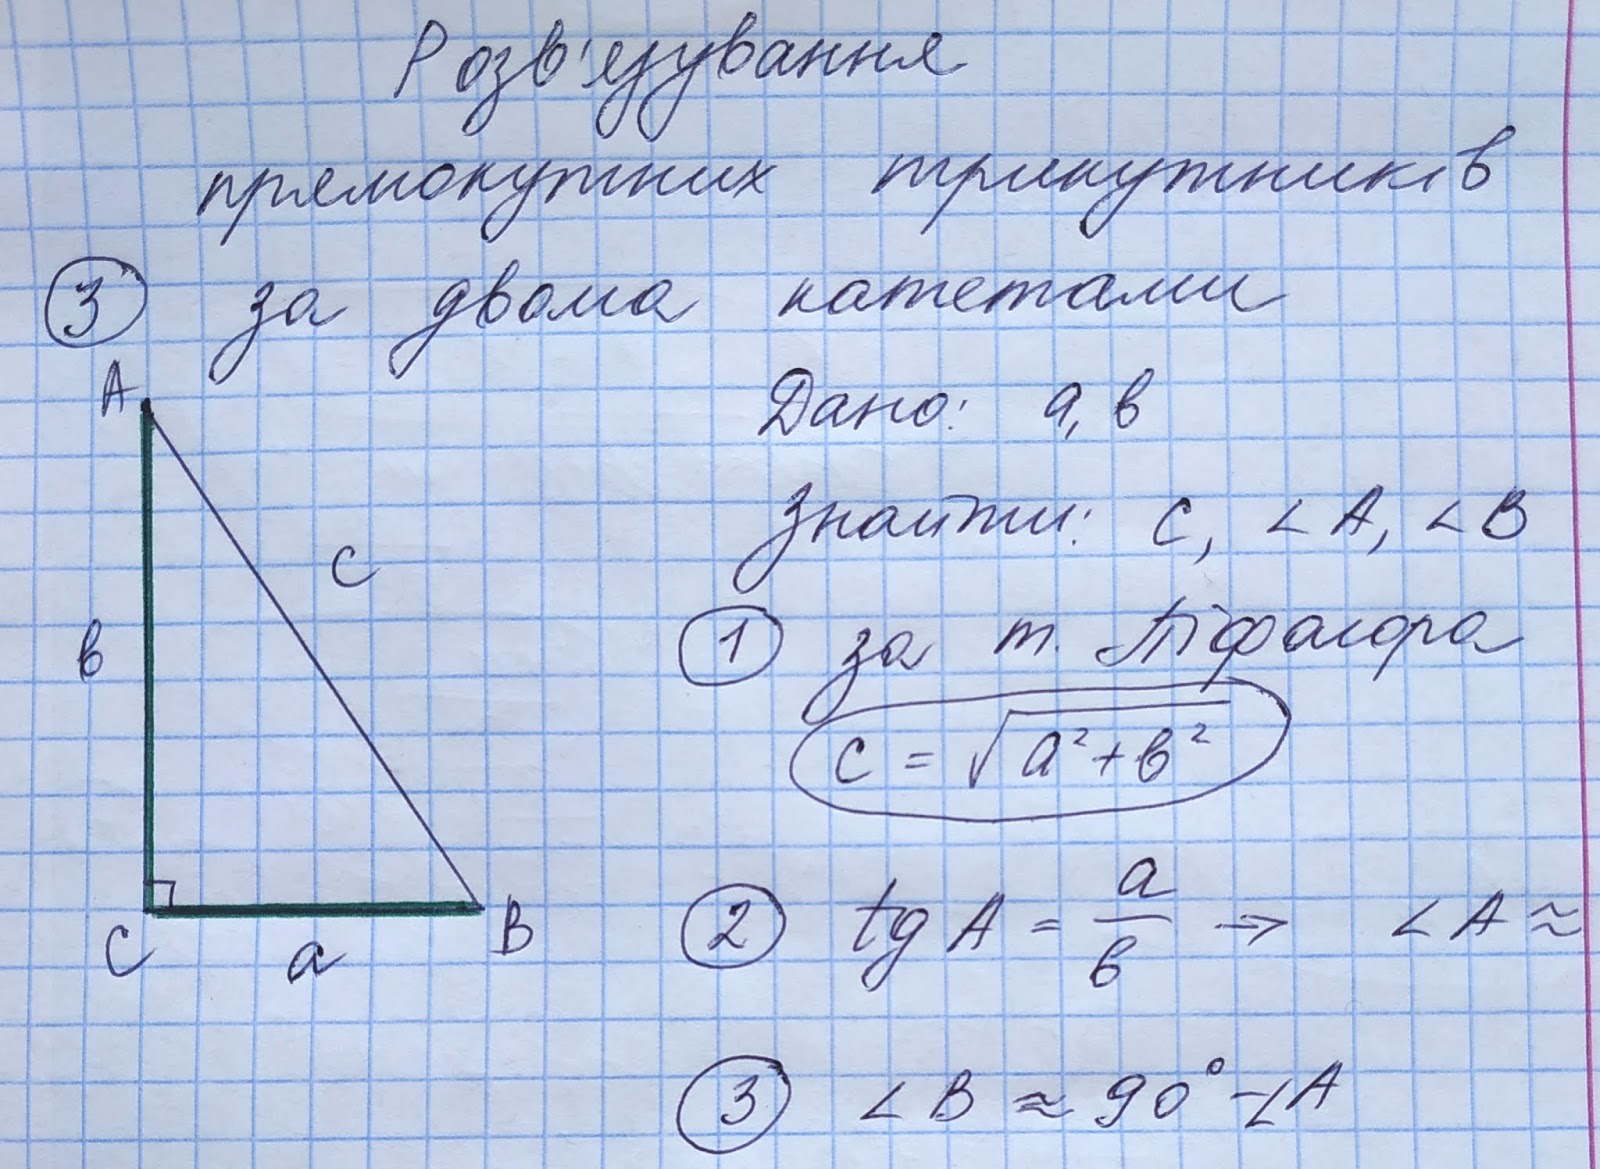 Розв'язування
прямокутних трикутників
③ за двома катетами
A
Дано: a, в
Знайти: c, ∠A, ∠B
c
в
① за т. Піфагора
c = √a²+в²
② tg A = a/в → ∠A ≈
C a B
③ ∠B ≈ 90° -∠A